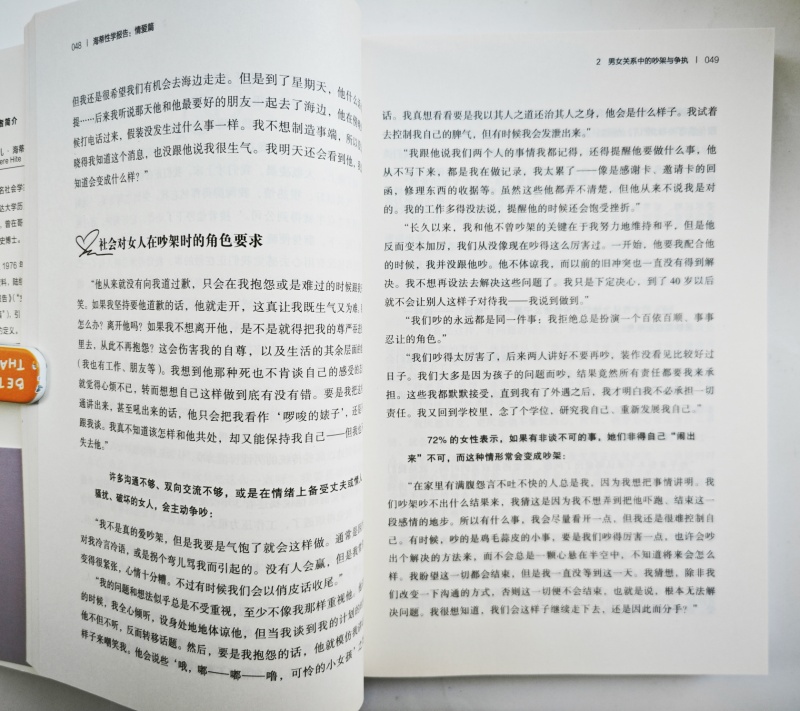 048 | 海蒂性学报告:情爱篇
但我还是很希望我们有机会去海边走走。但是到了星期天,他什么
提……后来我听说那天他和他最要好的朋友一起去了海边,他在傍
候打电话过来,假装没发生过什么事一样。我不想制造事端,所以
晓得我知道这个消息,也没跟他说我很生气。我明天还会看到他,
知道会变成什么样?”
社会对女人在吵架时的角色要求
“他从来就没有向我道过歉,只会在我抱怨或是难过的时候跟我
笑。如果我坚持要他道歉的话,他就走开,这真让我既生气又为难,
怎么办?离开他吗?如果我不想离开他,是不是就得把我的尊严
里去,从此不再抱怨?这会伤害我的自尊,以及生活的其余层面
(我也有工作、朋友等)。我想到他那种死也不肯谈自己的感受的
就觉得心烦不已,转而想想自己这样做到底有没有错。要是我把
通讲出来,甚至吼出来的话,他只会把我看作‘啰唆的婊子’,还
跟我谈。我真不知道该怎样和他共处,却又能保持我自己——但我
失去他。”
许多沟通不够、双向交流不够,或是在情绪上备受丈夫或情人
骚扰、破坏的女人,会主动争吵:
“我不是真的爱吵架,但是我要是气饱了就会这样做。通常是
对我冷言冷语,或是拐个弯儿骂我而引起的。没有人会赢,但是我
变得很紧张,心情十分糟。不过有时候我们会以俏皮话收尾。”
“我的问题和想法似乎总是不受重视,至少不像我那样重视他。
的时候,我全心倾听,设身处地地体谅他,但当我谈到我的计划
他不但不听,反而转移话题。然后,要是我抱怨的话,他就模仿我
样子来嘲笑我。他会说些‘哦,嘟——嘟——噜,可怜的小女孩’之
2 男女关系中的吵架与争执 | 049
话。我真想看看要是我以其人之道还治其人之身,他会是什么样子。我试着
去控制我自己的脾气,但有时候我会发泄出来。”
“我跟他说我们两个人的事情我都记得,还得提醒他要做什么事,他
从不写下来,都是我在做记录,我太累了——像是感谢卡、邀请卡的回
函,修理东西的收据等。虽然这些他都弄不清楚,但他从来不说我是对
的。我的工作多得没法说,提醒他的时候还会饱受挫折。”
“长久以来,我和他不曾吵架的关键在于我努力地维持和平,但是他
反而变本加厉,我们从没像现在吵得这么厉害过。一开始,他要我配合他
的时候,我并没跟他吵。他不体谅我,而以前的旧冲突也一直没有得到解
决。我不想再设法去解决这些问题了。我只是下定决心,到了 40 岁以后
就不会让别人这样子对待我——我说到做到。”
“我们吵的永远都是同一件事:我拒绝总是扮演一个百依百顺、事事
忍让的角色。”
“我们吵得太厉害了,后来两人讲好不要再吵,装作没看见比较好过
日子。我们大多是因为孩子的问题而吵,结果竟然所有责任都要我来承
担。这些我都默默接受,直到我有了外遇之后,我才明白我不必承担一切
责任。我又回到学校里,念了个学位,研究我自己、重新发展我自己。”
72%的女性表示,如果有非谈不可的事,她们非得自己“闹出
来”不可,而这种情形常会变成吵架:
“在家里有满腹怨言不吐不快的人总是我,因为我想把事情讲明。我
们吵架吵不出什么结果来,我猜这是因为我不想弄到把他吓跑、结束这一
段感情的地步。所以有什么事,我会尽量看开一点,但我还是很难控制自
己。有时候,吵的是鸡毛蒜皮的小事,要是我们吵得厉害一点,也许会吵
出个解决的方法来,而不会总是一颗心悬在半空中,不知道将来会怎么
样。我盼望这一切都会结束,但是我一直没等到这一天。我猜想,除非我
们改变一下沟通的方式,否则这一切便不会结束,也就是说,根本无法解
决问题。我很想知道,我们会这样子继续走下去,还是因此而分手?”
者简介
ere Hite
1976